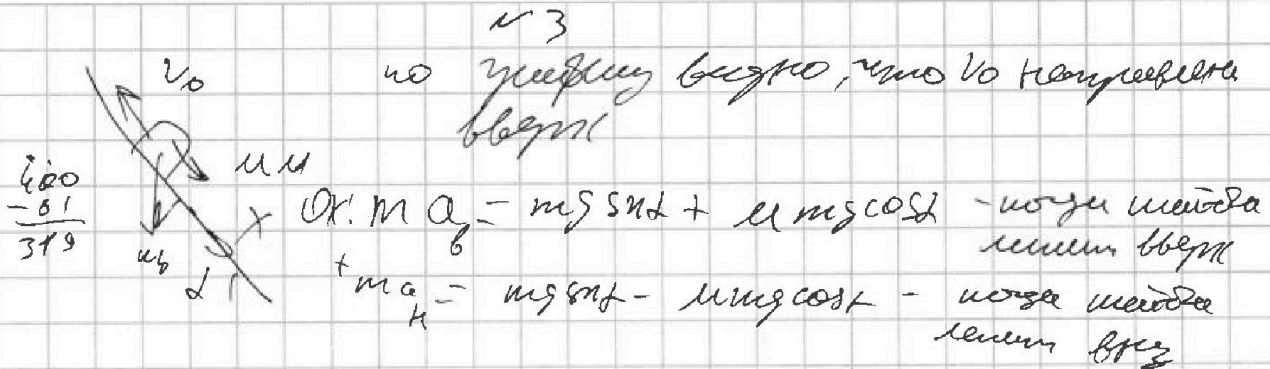 №3
по графику видно, что V₀ направлена
вверх
V₀
μN
400
- 81
319
mg
α
X
OX: m a_в = mg sinα + μmg cosα - когда шайба
летит вверх
+ m a_н = mg sinα - μmg cosα - когда шайба
летит вниз